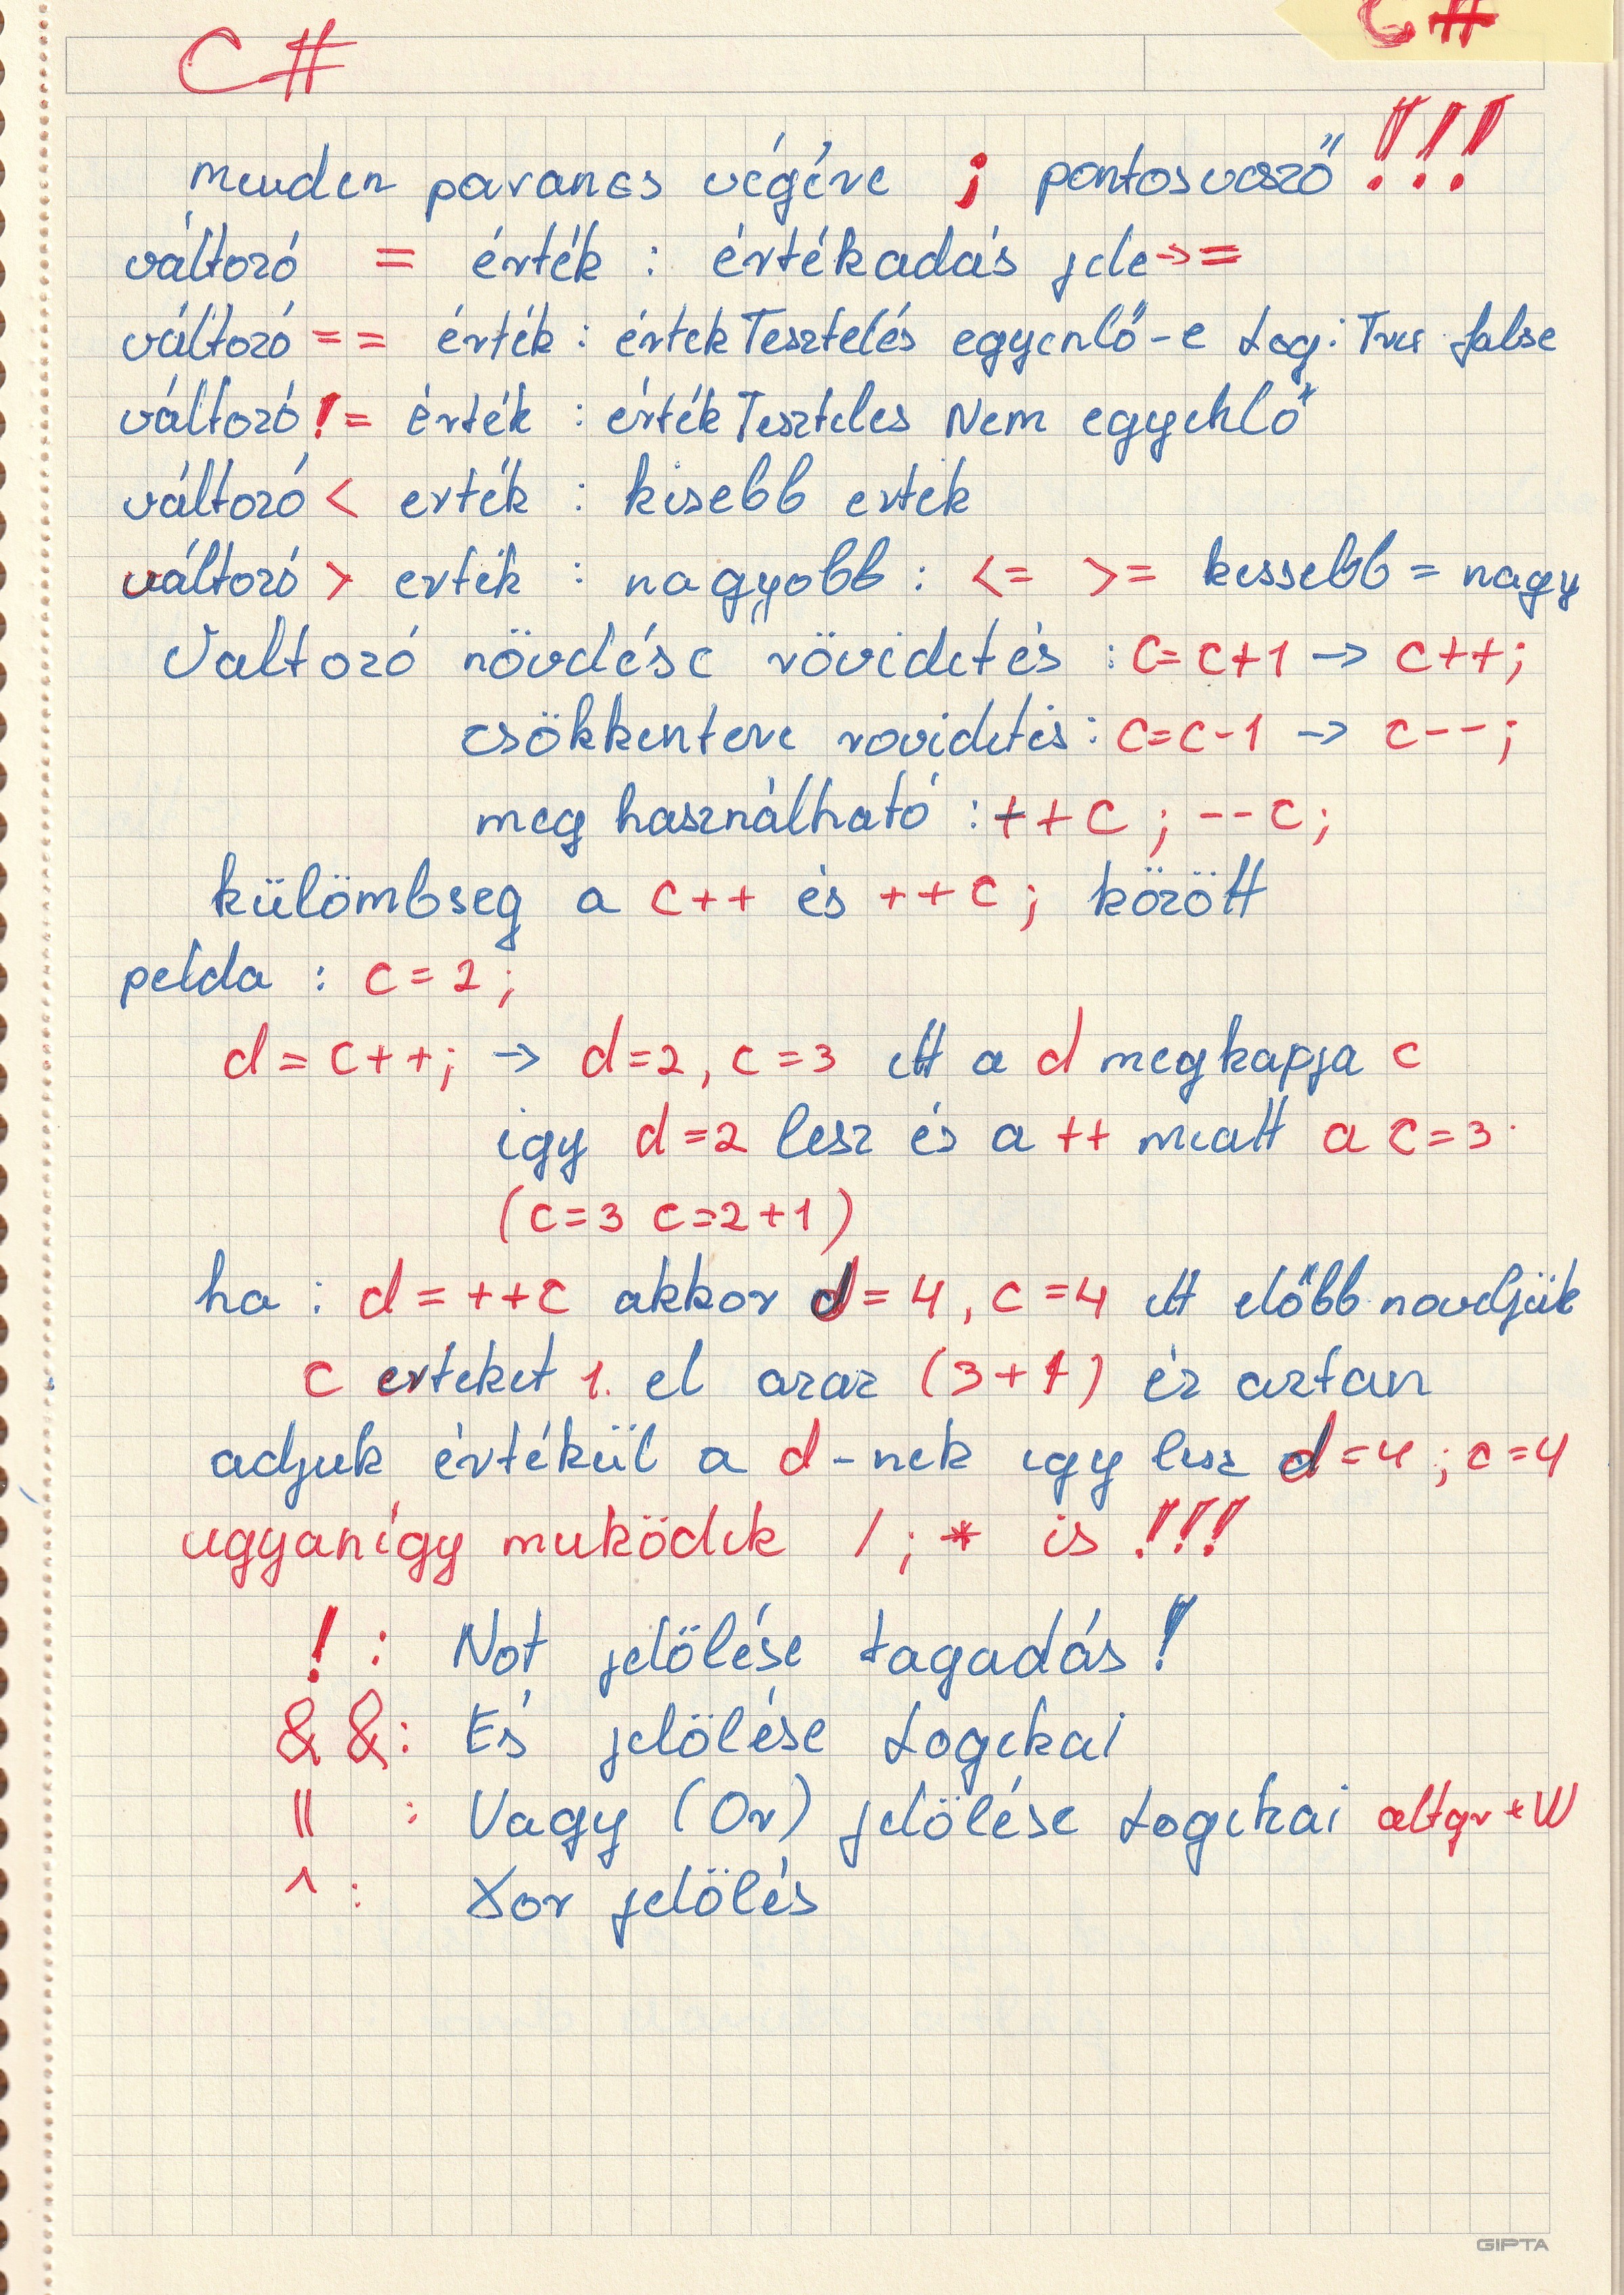 C#
C#
minden parancs végére ; pontosvessző !!!
változó = érték : értékadás jele -> =
változó == érték : érték Tesztelés egyenlő-e Log: True false
változó != érték : érték Tesztelés Nem egyenlő
változó < érték : kisebb érték
változó > erték : nagyobb : <= >= kissebb = nagy
Valtozó növelése rövidetés : C = C+1 -> C++;
csökkentere rovidetés : C=C-1 -> C--;
meg használható : ++C ; --C;
külömbseg a C++ és ++C ; között
pelda : C = 2 ;
d = C++; -> d=2, C=3 itt a d megkapja C
igy d=2 lesz és a ++ miatt a C=3
(C=3 C=2+1)
ha : d = ++C akkor d = 4, C = 4 itt előbb noveljük
C erteket 1. el azaz (3+1) éz aztan
adjuk értékül a d-nek igy lesz d=4 ; c=4
ugyanígy muködik / ; * is !!!
! : Not jelölése tagadás !
&&: És jelölése Logikai
|| : Vagy (Or) jelölése Logikai altgr + W
^ : Xor jelölés
GIPTA